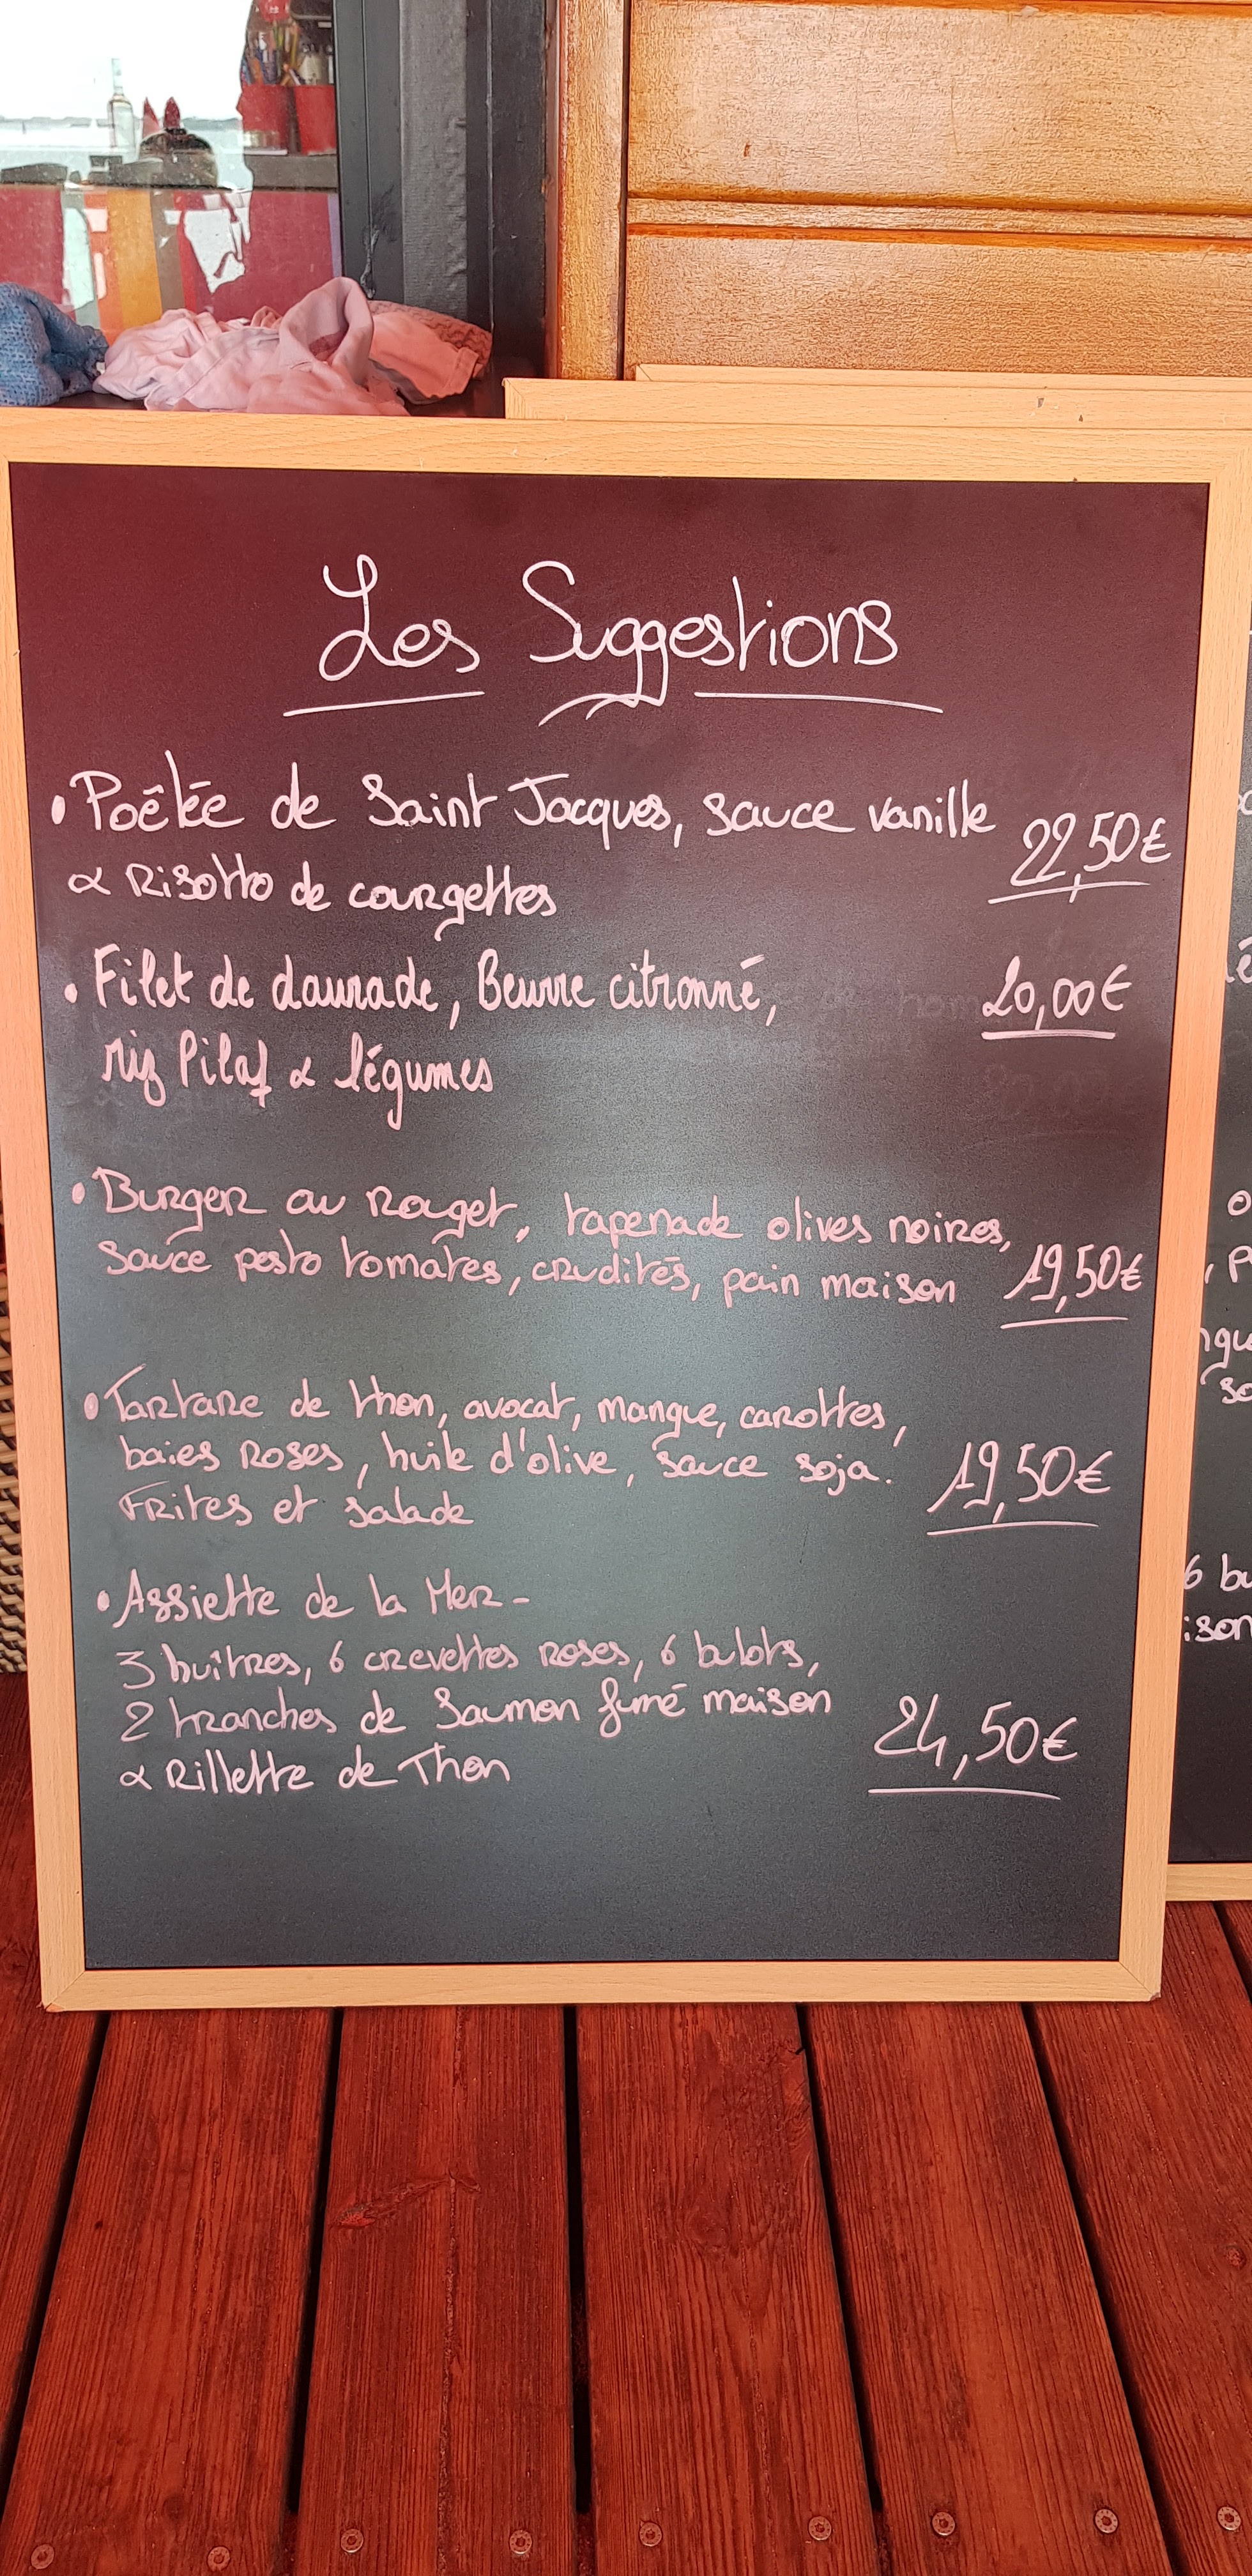 Les Suggestions
• Poêlée de Saint Jacques, sauce vanille 22,50€
& Risotto de courgettes
• Filet de daurade, Beurre citronné, 20,00€
riz Pilaf & légumes
• Burger au Rouget, tapenade olives noires,
sauce pesto tomates, crudités, pain maison 19,50€
• Tartare de thon, avocat, mangue, carottes,
baies roses, huile d'olive, sauce soja. 19,50€
Frites et salade
• Assiette de la Mer -
3 huîtres, 6 crevettes roses, 6 bulots,
2 tranches de Saumon fumé maison 24,50€
& Rillette de Thon